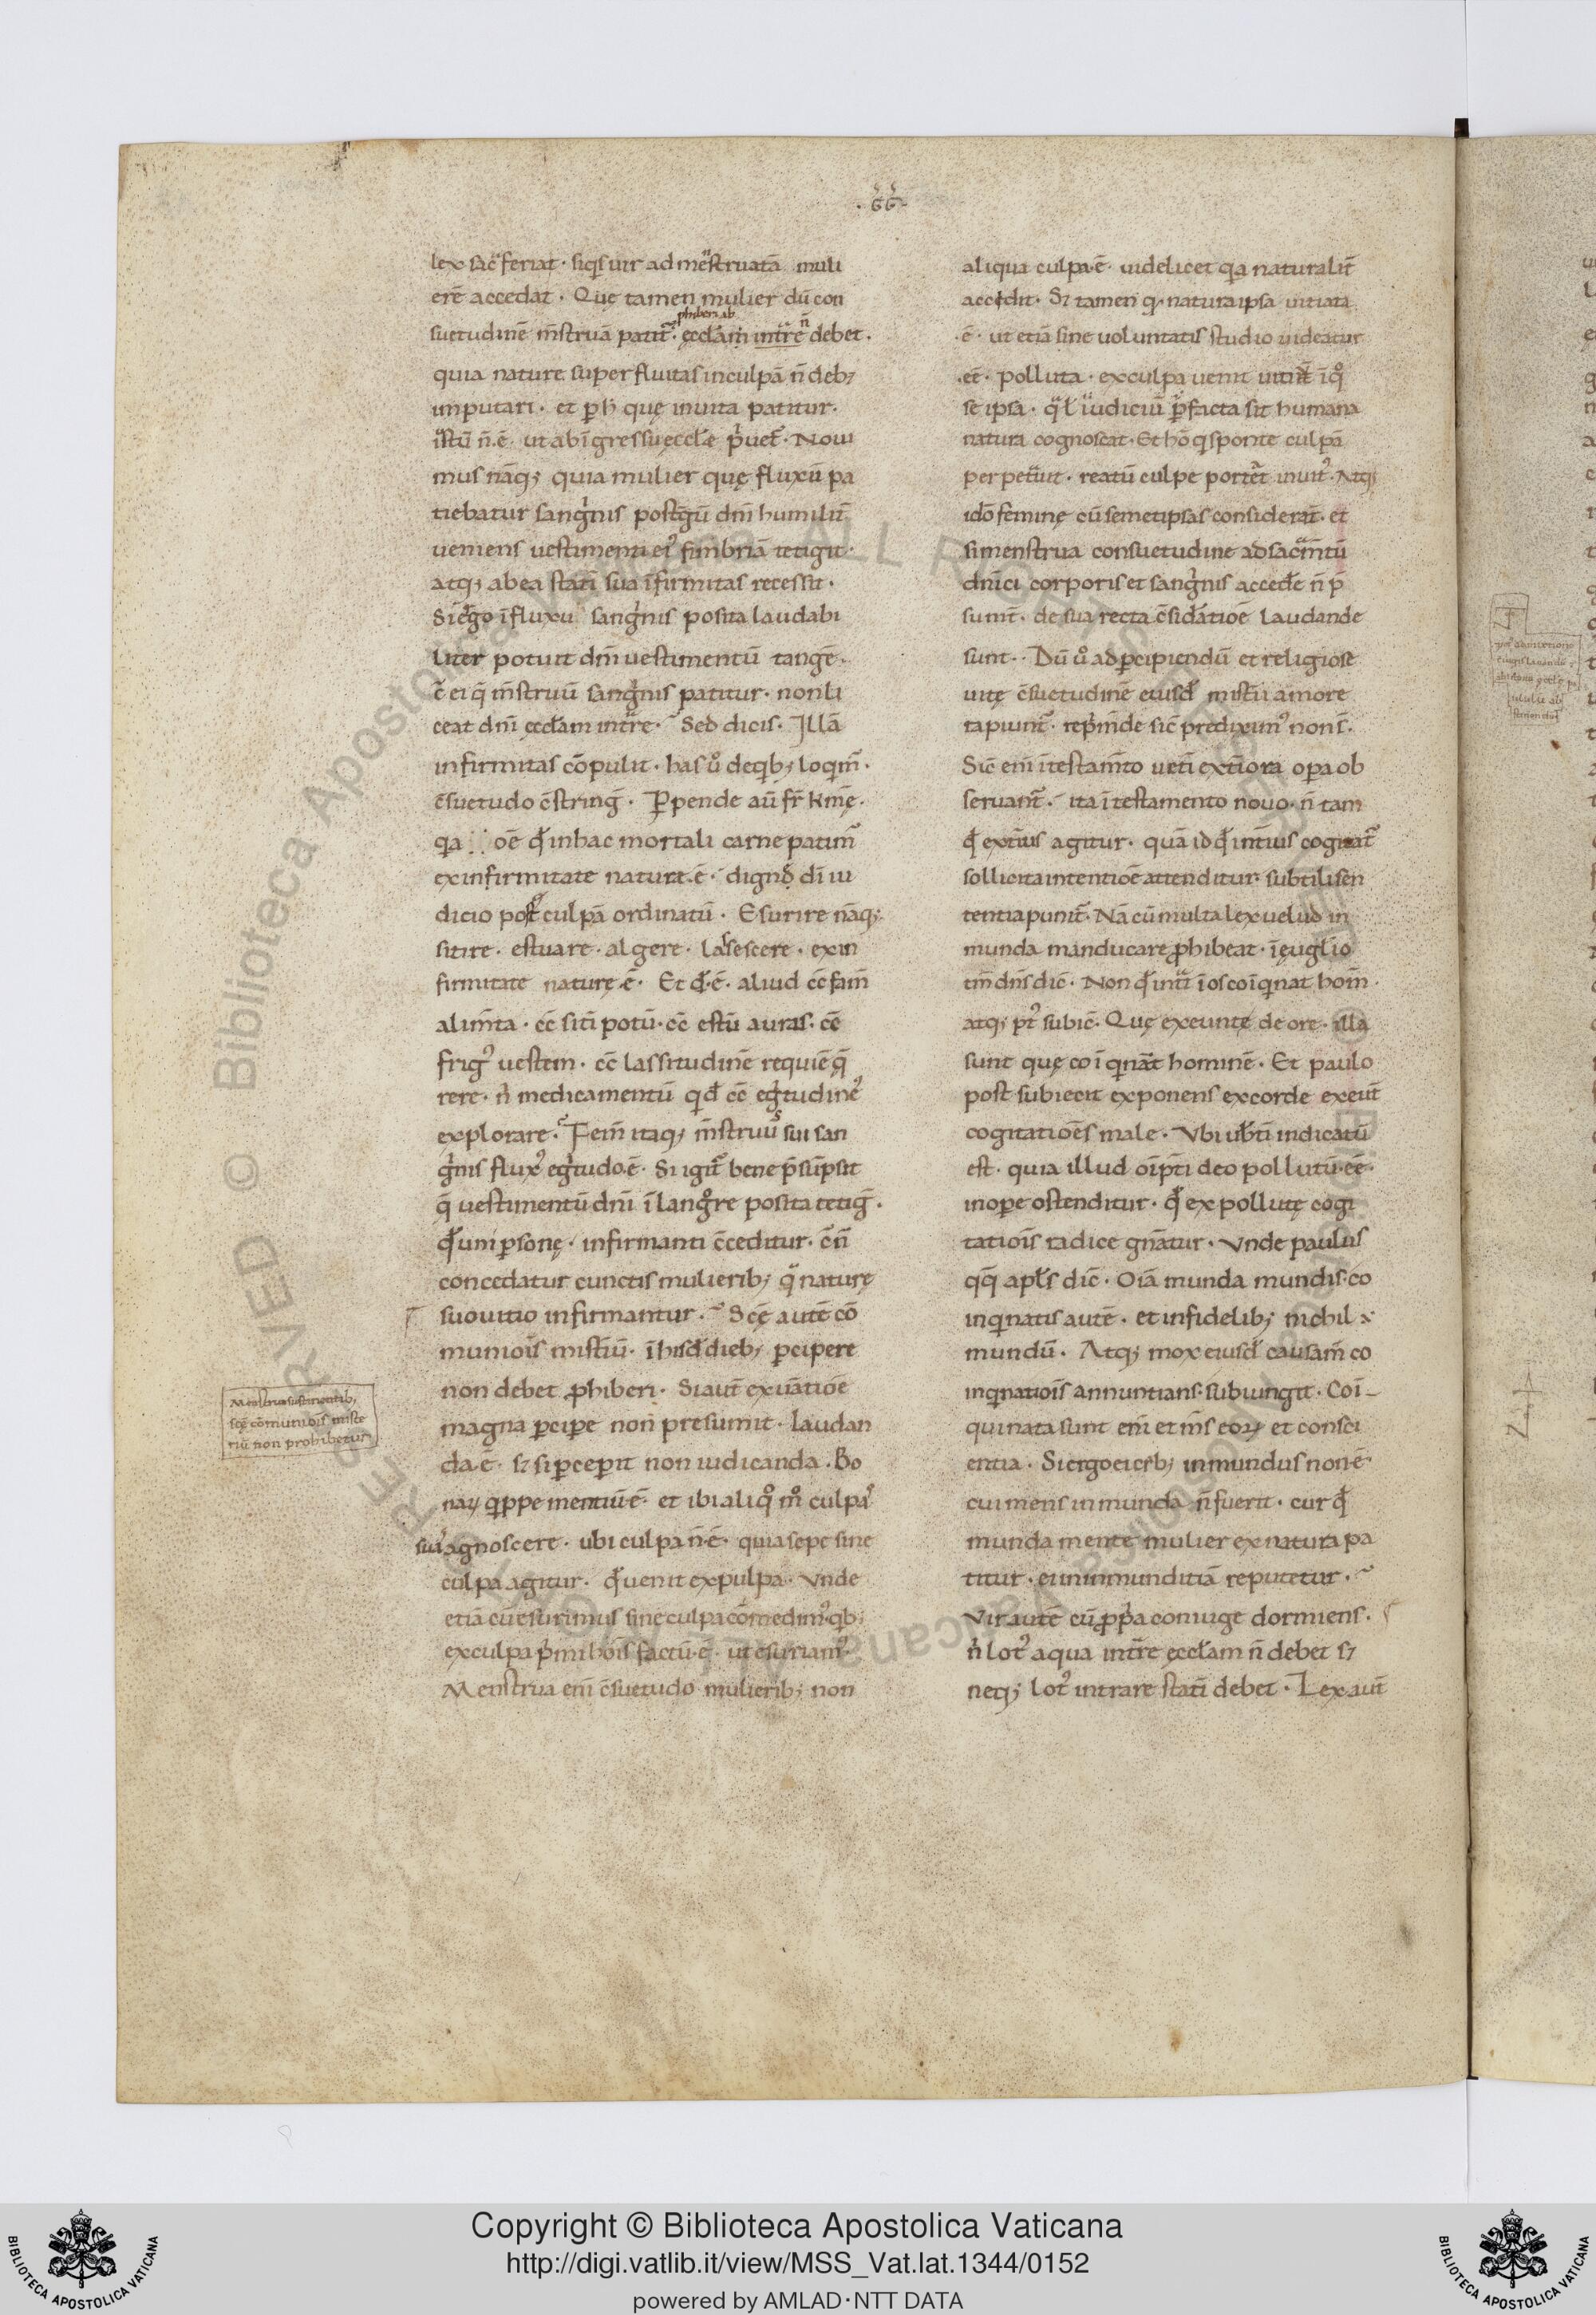 ·GG·
lex sac̄ feriat · siq̄s uir ad mēstruatā muli
erē accedat · Quę tamen mulier dū con
phiberi ab
suetudinē m̄struā patit᷑ · ęccl̄am int̄re n̄ debet ·
quia nature superfluitas inculpā n̄ deb;
imputari · et ꝑ h̄ quę inuita patitur ·
iustū n̄ ē · ut ab īgressu ęccl̄e p̄uet᷑ · Noui
mus nāq; quia mulier quę fluxū pa
tiebatur sangⁱnis postgū dn̄i humilit̄
ueniens uestimenti ei᷒ fimbriā tetigit ·
atq; ab ea statī sua īfirmitas recessit ·
Si ḡo ī fluxu sangⁱnis posita laudabi
liter potuit dn̄i uestimentū tangē ·
c̄ ei q̄ m̄struū sangⁱnis patitur · non li
ceat dn̄i ęccl̄am int̄re · Sed dicis · Illā
infirmitas cōpulit · has ů de qⁱb; loqⁱm̄ ·
c̄suetudo c̄string̅ · Perpende au̅ fr̄ kmē ·
qⁱa oē qđ in hac mortali carne patim᷒
ex infirmitate nature ē · digno dī iu
dicio post culpā ordinatū · Esurire nāq;
sitire · estuare · algere · lassescere · ex in
firmitate naturę ē · Et qđ ē · aliud c̄ fam̄
alim̄ta · c̄ sitī potū · c̄ estū auras · c̄
frig᷒ uestem · c̄ lassitudinē requiē q̄
rere · n̄ medicamentū qⁱd c̄ egⁱtudine᷒
explorare · Fem̄ itaq; m̄struus sui san
gⁱnis flux᷒ egⁱtudo ē · Si igit᷑ bene p̄sūpsit
q̄ uestimentū dn̄i ī langore posita tetig̅ ·
qđ uni ꝑsonę · infirmanti c̄ceditur · c̄ n̄
concedatur cunctis mulierib; q̄ naturę
suo uitio infirmantur · Scē autē cō
munioīs mist̄iū · ī hisđ dieb; ꝑcipere
non debet ꝓhiberi · Si aut̄ ex un̄atiōe
magna ꝑciꝑe non presumit · laudan
da ē · sꝫ si ꝑceꝑit non iudicanda · Bo
naꝝ qⁱppe mentiū ē · et ibi aliqo m̊ culpas
suas agnoscere · ubi culpa n̄ ē · quia sepe sine
culpa agitur · qđ uenit ex pulpa · Vnde
etiā cū esurimus sine culpa comedim᷒ · qⁱb;
ex culpa pⁱmi hoīs factū ē · ut esuriam᷒ ·
Menstrua eni̅ c̄suetudo mulierib; non
Menstrua sustinentib;
scę cōmunioīs miste
riū non prohibetur
aliqua culpa ē · uidelicet qⁱa naturalit̄
accidit · Sꝫ tamen q natura ipsa uitiata
· ē · ut etiā sine uoluntatis studio uideatur
· eē · polluta · ex culpa uenit uitiū īq̊
se ipsa · q̄l iudiciū ꝑ facta sit humana
natura cognoscat · Et hō qⁱ sponte culpā
perpet̄uit · reatū culpe portet inuit᷒ · Atq;
ideo feminę cū semetipsas considerāt · et
si menstrua consuetudine ad sac̄m̄tū
dn̄ici corporis et sangⁱnis acced̄e n̄ p̄
sum̄t · de sua recta c̄sid̄atiōe laudande
sunt · Dū ů ad ꝑcipiendū et religiose
uitę c̄suetudinē eiusđ mist̄ii amore
rapiunt᷑ · rep̄m̄de sic̄ predixim᷒ non s̄ ·
Sic̄ eni̅ ī testam̄to uet̄i ext̄iora oꝑa ob
seruant᷑ · ita ī testamento nouo · n̄ tam
qđ ext̄ius agitur · quā id qđ int̄ius cogitat᷑
sollicita intentiōe attenditur · subtili sen
tentia punit᷑ · Nā cū multa lex uelud in
munda manducare ꝓhibeat · ī ęuglīo
tn̄ dn̄s dic̄ · Non qđ int̄t ī os coīqⁱnat hom̄ ·
atq; p᷒ subic̄ · Quę exeunt de ore · illa
sunt quę coīqⁱnant hominē · Et paulo
post subiecit exponens ex corde exeut̄
cogitatiōes male · Vbi ub̄tī indicatū
est · quia illud oīp̄ti deo pollutū eē ·
in oꝑe ostenditur · qđ ex pollutę cogi
tatioīs radice gn̄atur · Vnde paulus
qq̄ apl̄s dic̄ · Oīa munda mundis · co
inqⁱnatis autē · et infidelib; nichil ÷
mundū · Atq; mox eiusđ causam̄ co
inqⁱnatioīs annuntians · subiungit · Coī-
quinata sunt eni̅ et m̄s eoꝝ et consci
entia · Si ergo ei cib; inmundus non ē ·
cui mens inmunda n̄ fuerit · cur qđ
munda mente mulier ex natura pa
titur · ei in inmunditiā reputetur ·
Vir autē cū ꝓpⁱa coniuge dormiens ·
n̄ lot᷒ aqua int̄re ęccl̄am n̄ debet sꝫ
neq; lot᷒ intrare statī debet · Lex aut̄
Copyright © Biblioteca Apostolica Vaticana
http://digi.vatlib.it/view/MSS_Vat.lat.1344/0152
powered by AMLAD·NTT DATA